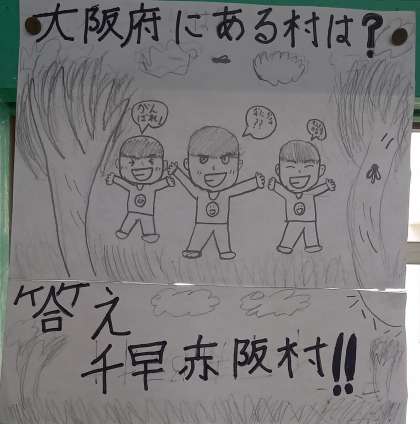 大阪府にある村は?
がん
ばれ!
答え
千早赤阪村!!